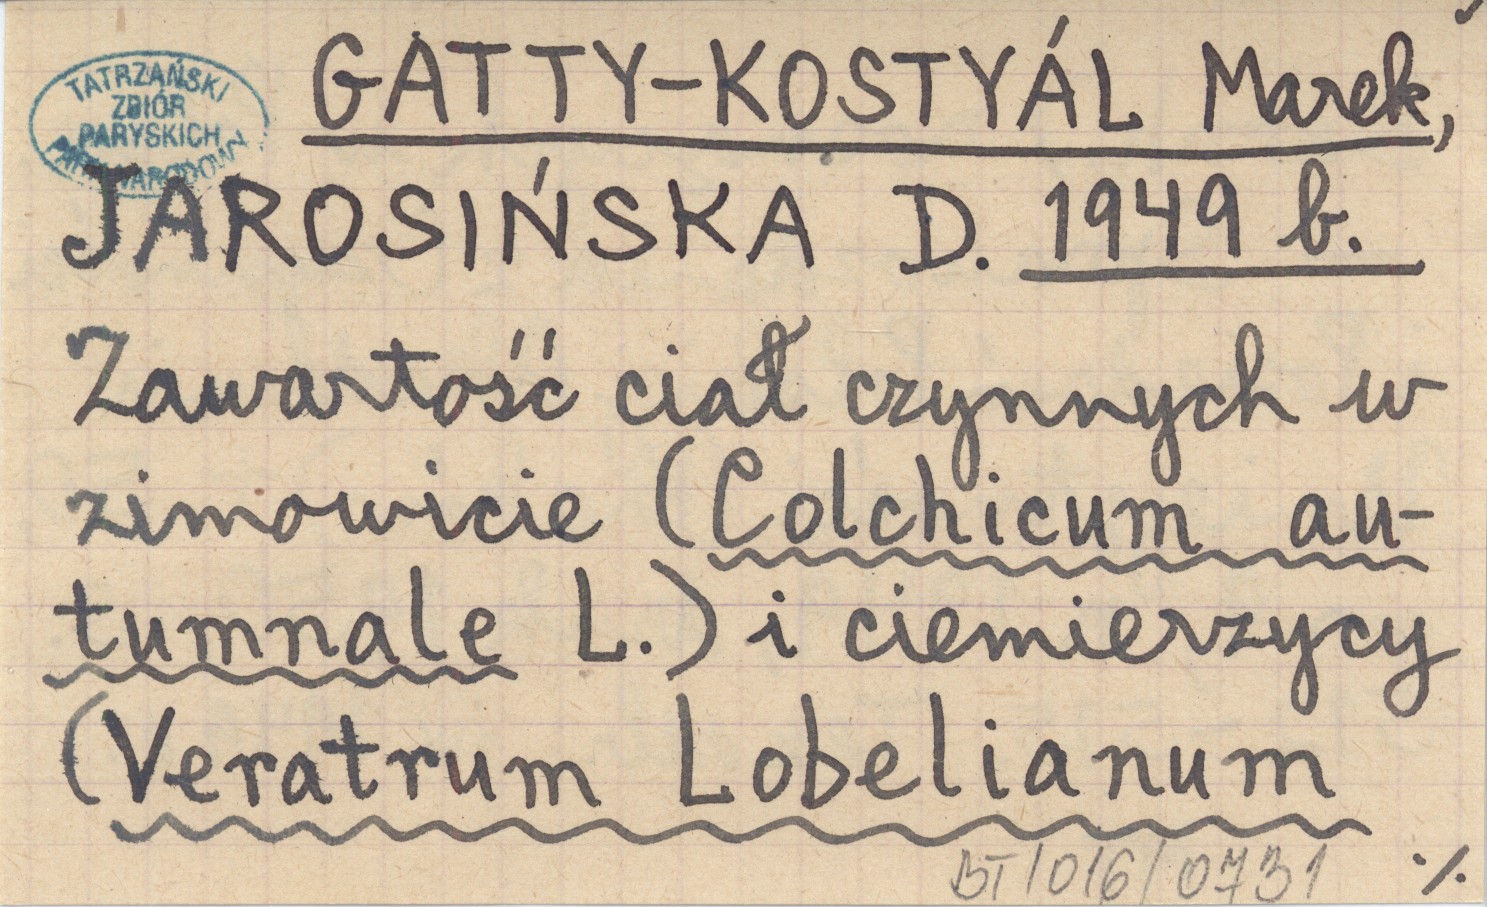 TATRZAŃSKI
ZBIÓR
PARYSKICH
PARK NARODOWY
GATTY-KOSTYÁL Marek,
JAROSIŃSKA D. 1949 b.
Zawartość ciał czynnych w
zimowicie (Colchicum au-
tumnale L.) i ciemierzycy
(Veratrum Lobelianum
BT/016/0731 ./.